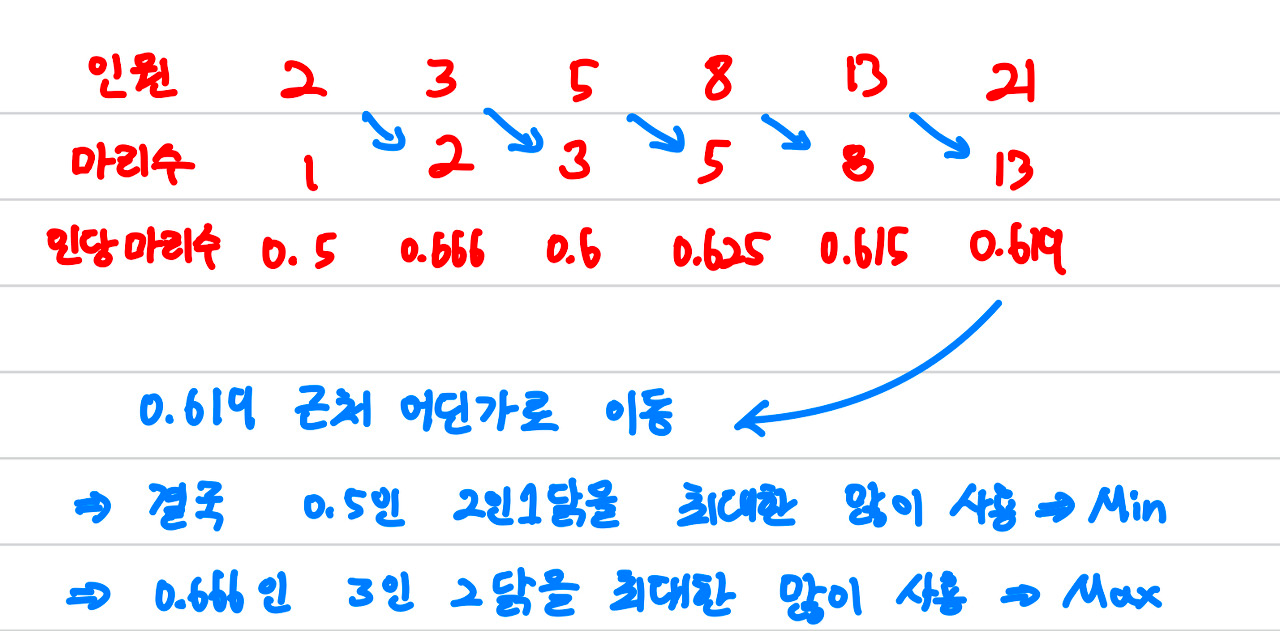 인원 2 3 5 8 13 21
마리수 1 2 3 5 8 13
인당마리수 0.5 0.666 0.6 0.625 0.615 0.619
0.619 근처 어딘가로 이동
⇒ 결국 0.5인 2인1닭을 최대한 많이 사용 ⇒ Min
⇒ 0.666인 3인 2닭을 최대한 많이 사용 ⇒ Max